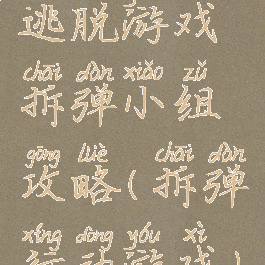 逃脱游戏
chāi dàn xiǎo zǔ
拆弹小组
gōng lüè chāi dàn
攻略(拆弹
xíng dòng yóu xì
行动游戏)